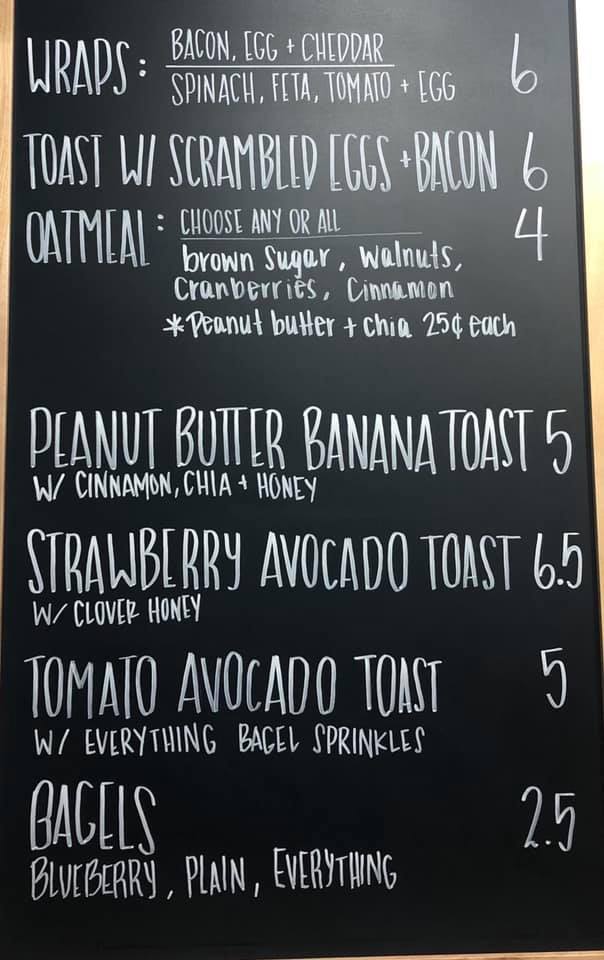 WRAPS: BACON, EGG + CHEDDAR 6
SPINACH, FETA, TOMATO + EGG
TOAST W/ SCRAMBLED EGGS + BACON 6
OATMEAL: CHOOSE ANY OR ALL 4
brown Sugar, Walnuts,
Cranberries, Cinnamon
*Peanut butter + chia 25¢ each
PEANUT BUTTER BANANA TOAST 5
W/ CINNAMON, CHIA + HONEY
STRAWBERRY AVOCADO TOAST 6.5
W/ CLOVER HONEY
TOMATO AVOCADO TOAST 5
W/ EVERYTHING BAGEL SPRINKLES
BAGELS 2.5
BLUEBERRY, PLAIN, EVERYTHING